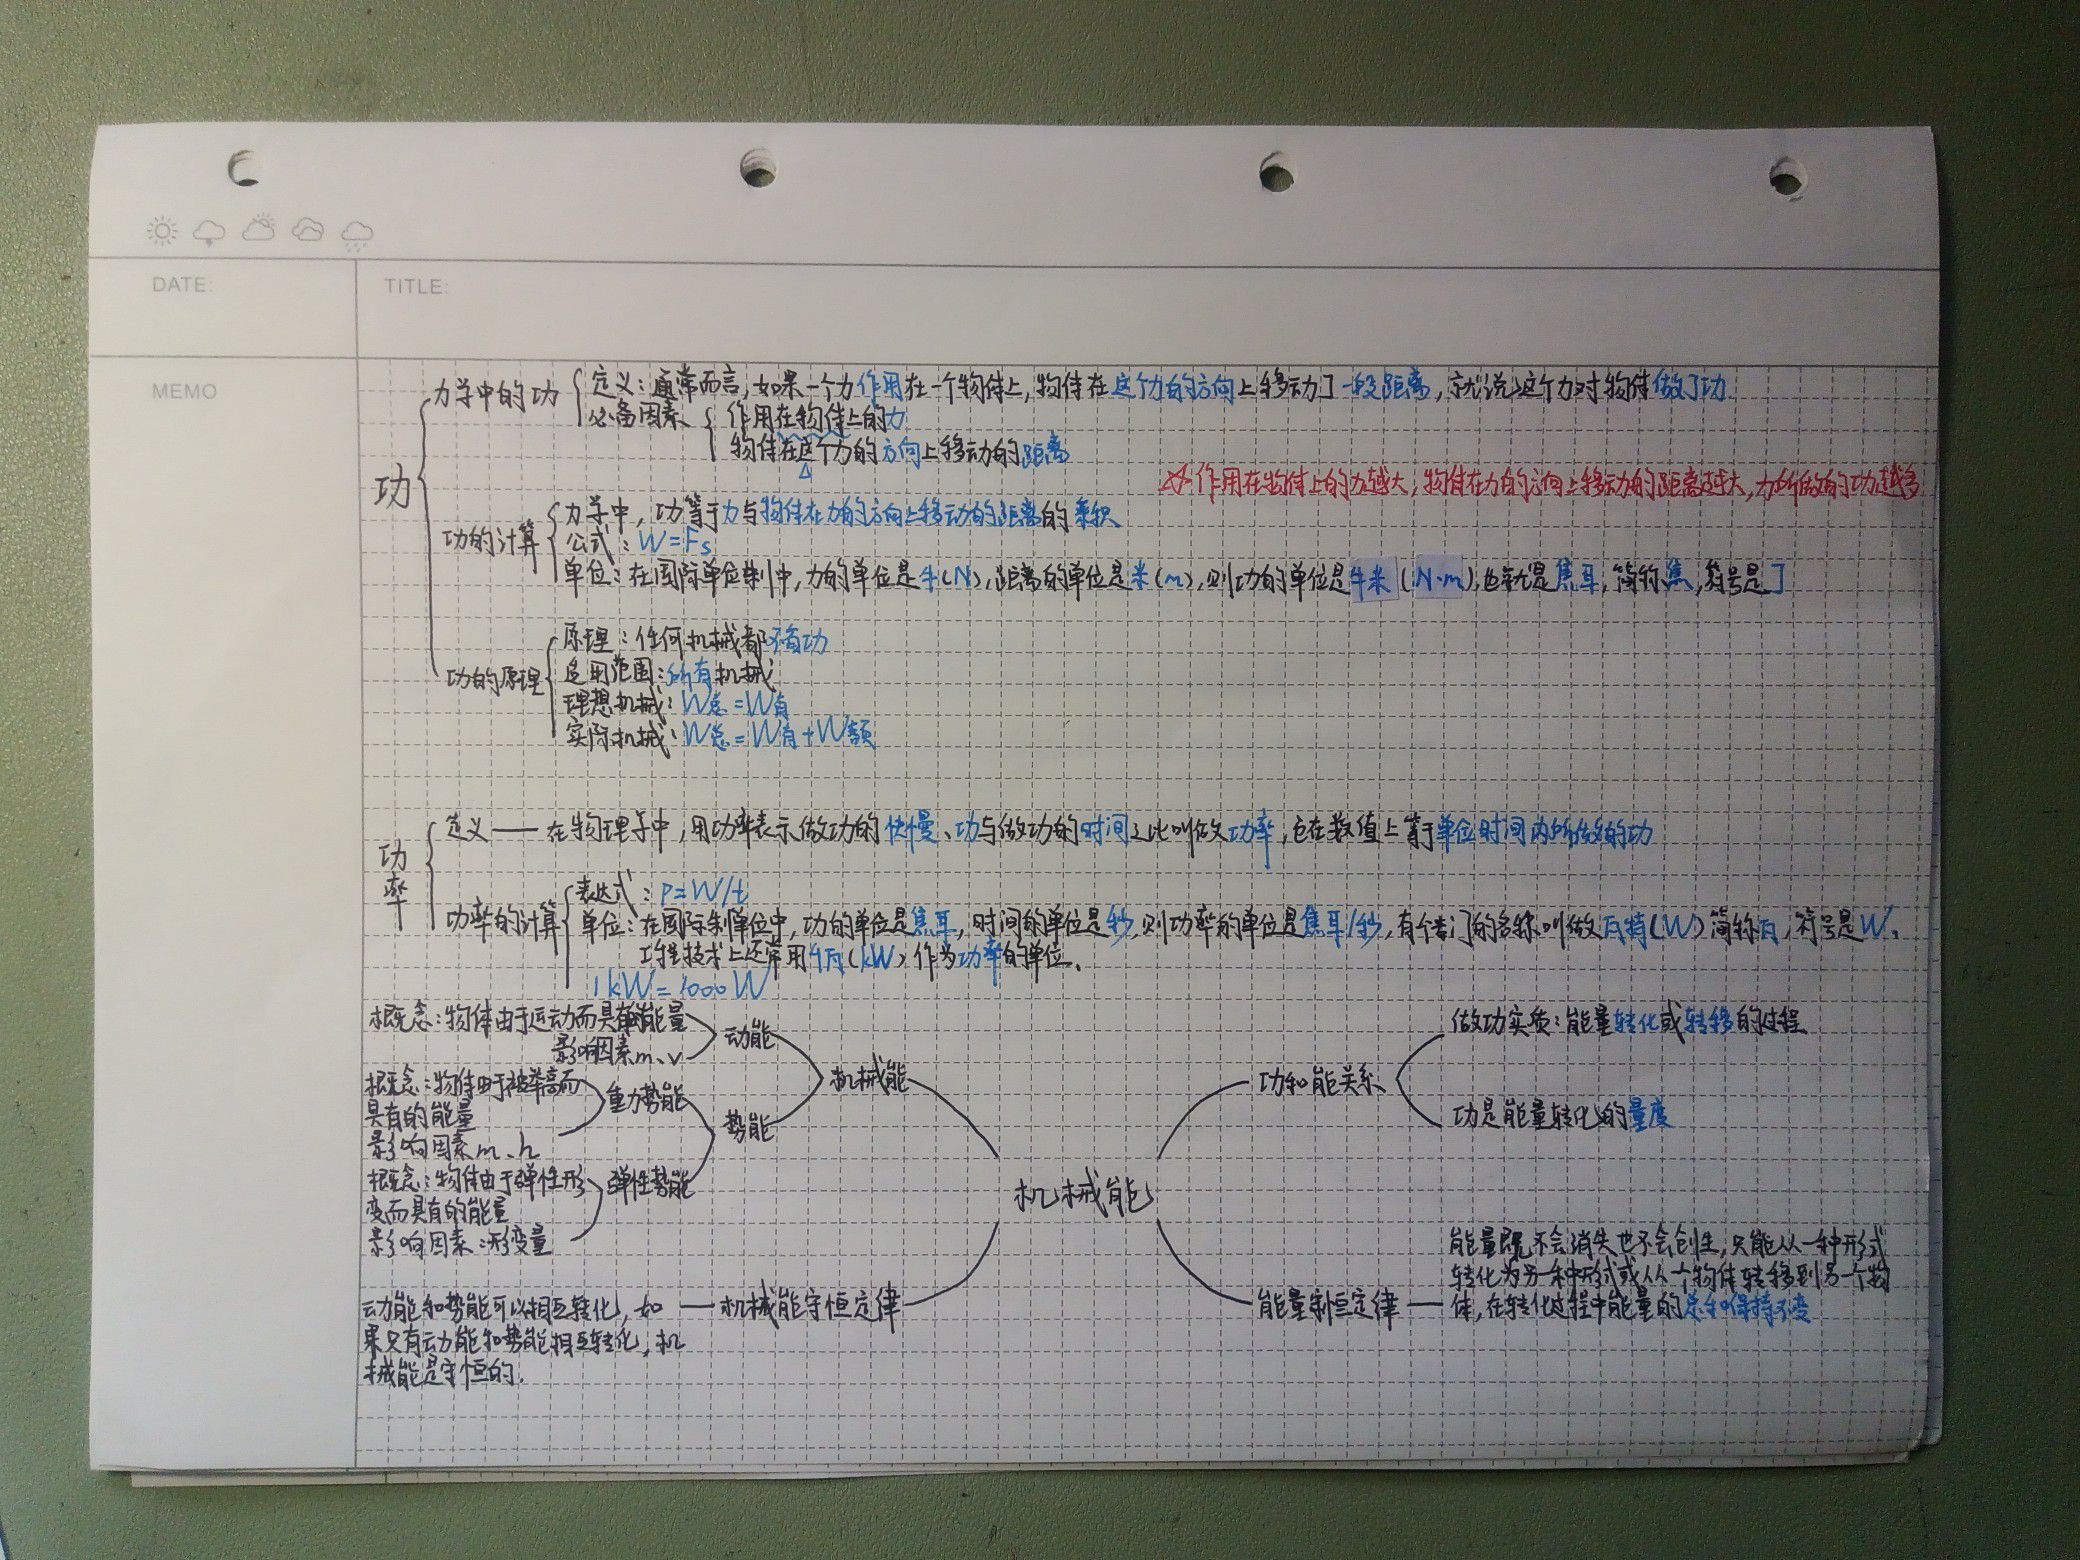 DATE:
TITLE:
MEMO
功
力学中的功
定义：通常而言，如果一个力作用在一个物体上，物体在这个力的方向上移动了一段距离，就说这个力对物体做了功
必备因素
作用在物体上的力
物体在这个力的方向上移动的距离
☆作用在物体上的力越大，物体在力的方向上移动的距离越大，力所做的功越多
功的计算
力学中，功等于力与物体在力的方向上移动的距离的乘积
公式：W=Fs
单位：在国际单位制中，力的单位是牛(N)，距离的单位是米(m)，则功的单位是牛米(N·m)，也就是焦耳，简称焦，符号是J
功的原理
原理：任何机械都不省功
适用范围：所有机械
理想机械：W总=W有
实际机械：W总=W有+W额
功率
定义——在物理学中，用功率表示做功的快慢、功与做功的时间之比叫做功率，它在数值上等于单位时间内所做的功
功率的计算
表达式：P=W/t
单位：在国际制单位中，功的单位是焦耳，时间的单位是秒，则功率的单位是焦耳/秒，有个专门的名称叫做瓦特(W)简称瓦，符号是W、
工程技术上还常用千瓦(kW)作为功率的单位、
1kW=1000W
概念：物体由于运动而具有的能量
影响因素m、v
动能
概念：物体由于被举高而
具有的能量
影响因素m、h
重力势能
势能
机械能
概念：物体由于弹性形
变而具有的能量
影响因素：形变量
弹性势能
机械能
动能和势能可以相互转化，如
果只有动能和势能相互转化，机
械能是守恒的.
机械能守恒定律
功和能关系
做功实质：能量转化或转移的过程
功是能量转化的量度
能量制恒定律
能量既不会消失也不会创生，只能从一种形式
转化为另一种形式或从一个物体转移到另一个物
体，在转化过程中能量的总和保持不变